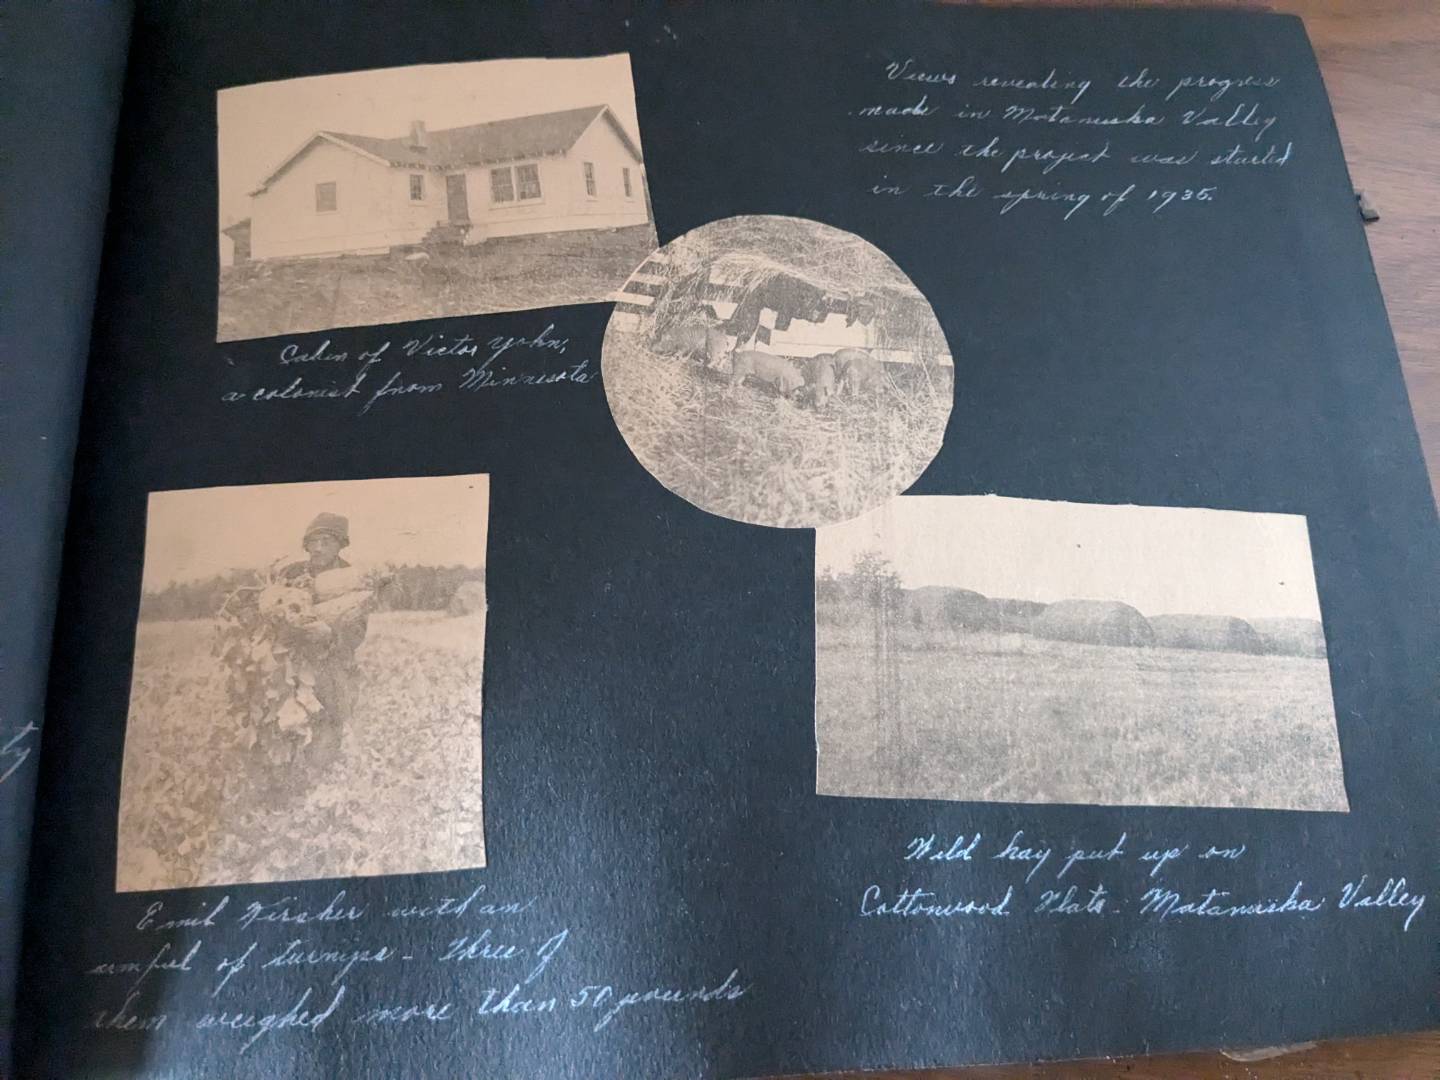 Views revealing the progress
made in Matanuska Valley
since the project was started
in the spring of 1935.
Cabin of Victor Yohn,
a colonist from Minnesota
Emil with an
armful of turnips - three of
them weighed more than 50 pounds
Wild hay put up on
Cottonwood Flats - Matanuska Valley
ty